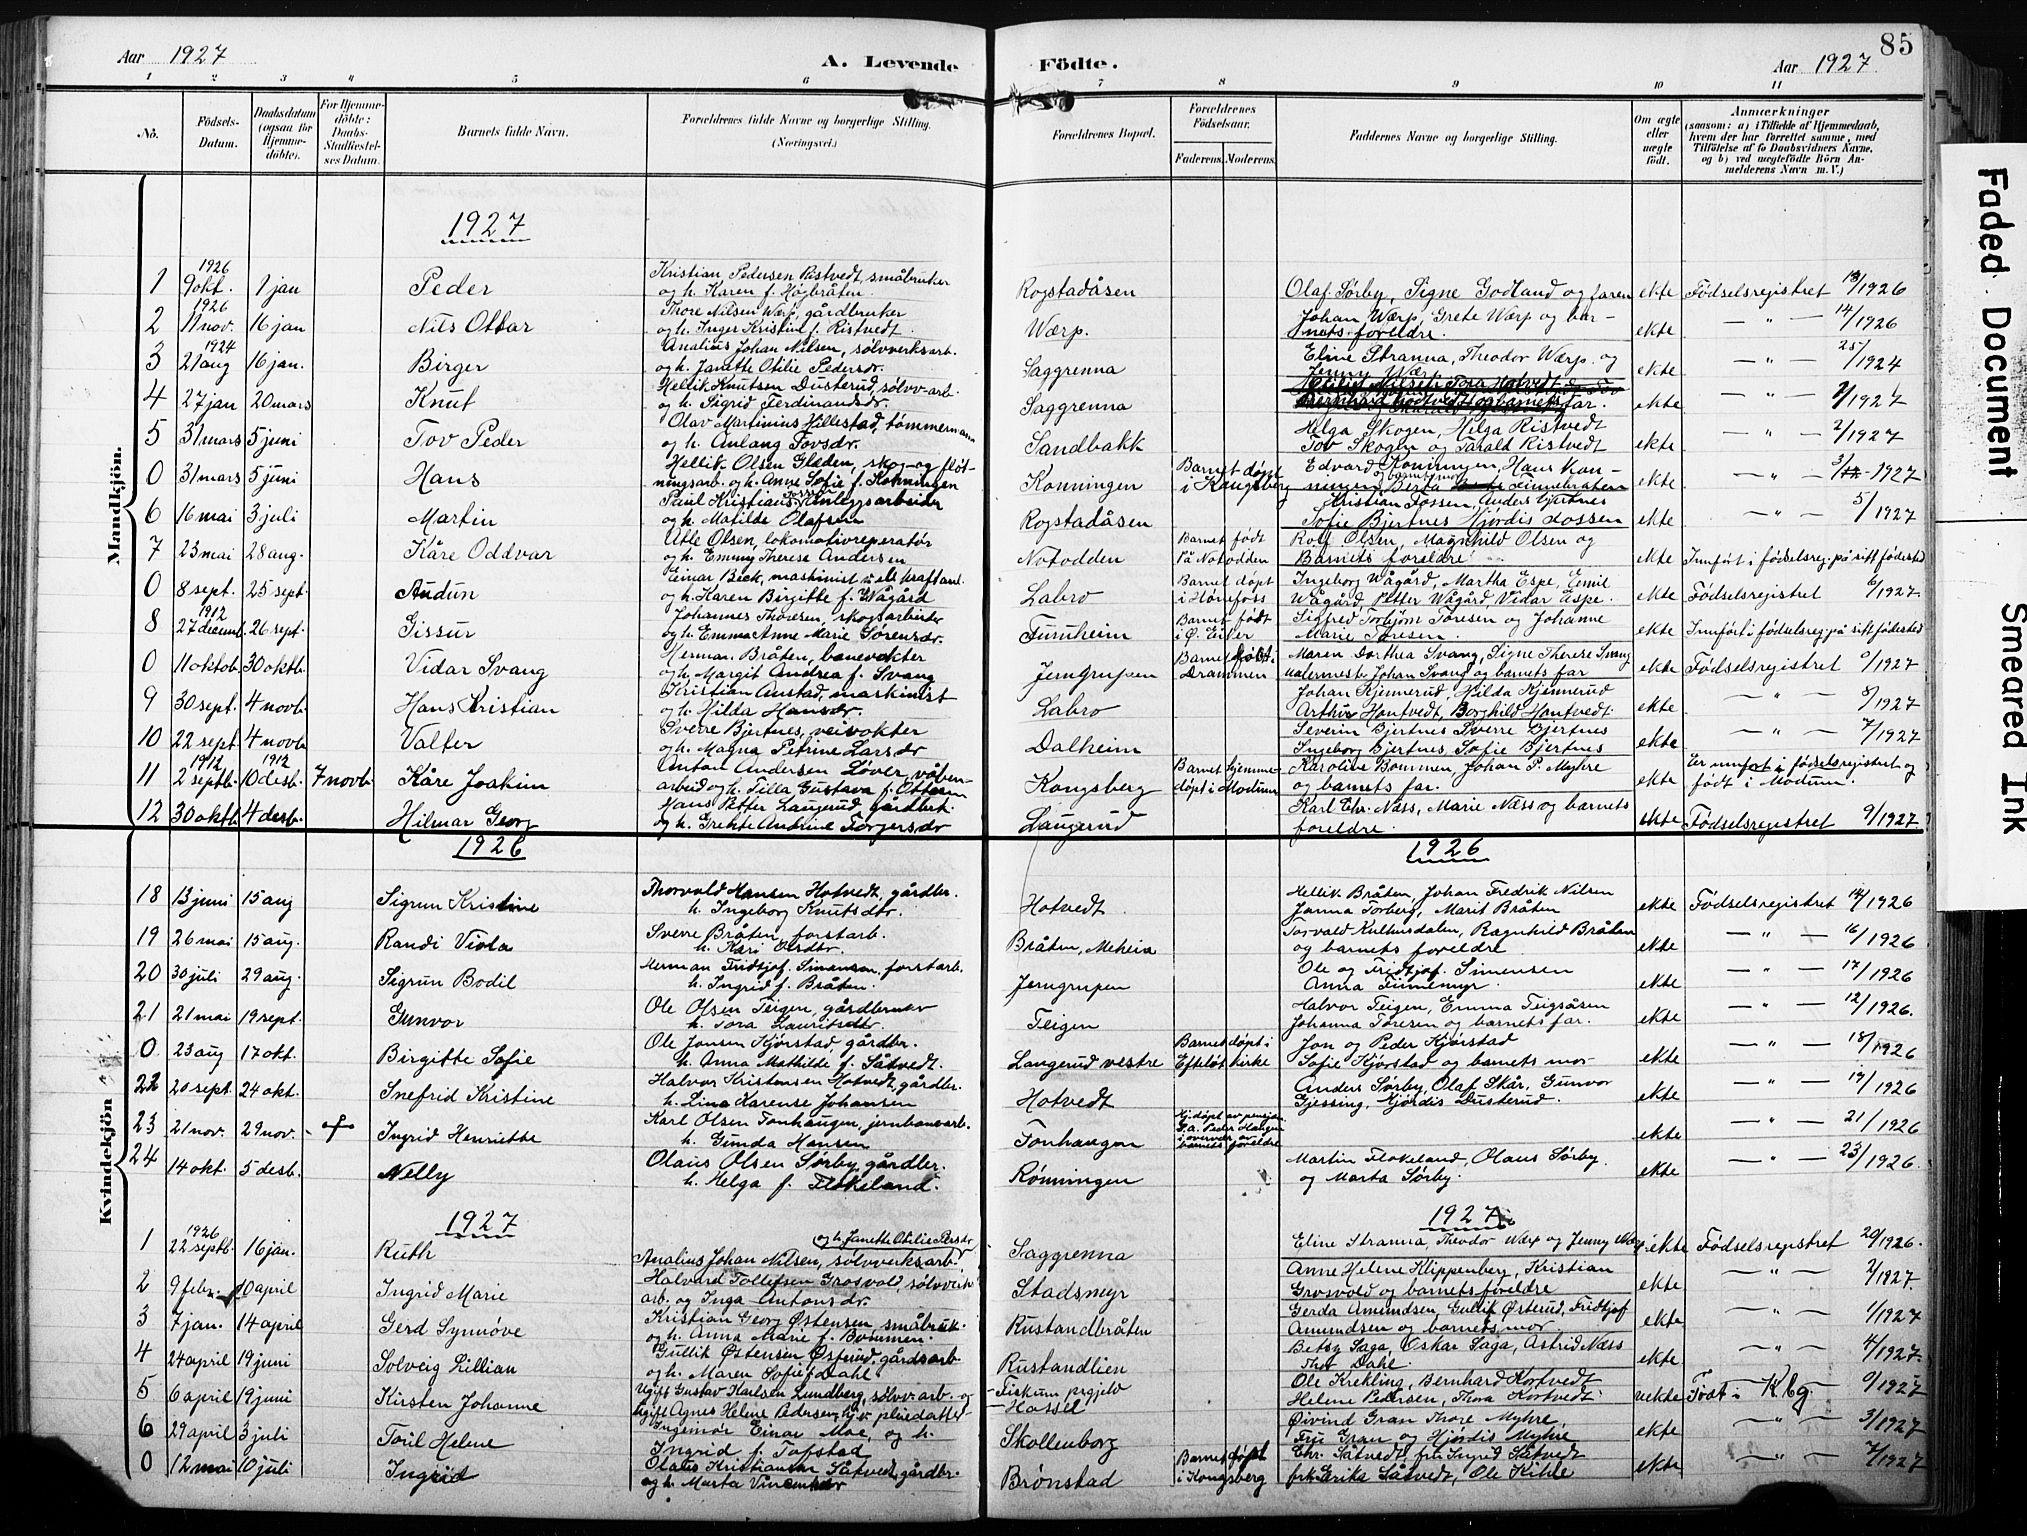 Aar 1927
A. Levende Födte.
Aar 1927
85
1 2 3 4 5 6 7 8 9 10 11
No.
Födsels-Datum.
Daabsdatum (ogsaa for Hjemme-döbte).
For Hjemme-döbte: Daabs-Stadfæstel-ses Datum.
Barnets fulde Navn.
Forældrenes fulde Navne og borgerlige Stilling.
(Næringsvei.)
Forældrenes Bopæl.
Forældrenes Födselsaar.
Faderens. Moderens.
Faddernes Navne og borgerlige Stilling.
Om ægte eller uægte födt.
Anmærkninger
(saasom: a) i Tilfælde af Hjemmedaab, hvem der har forrettet samme, med Tilföielse af to Daabsvidners Navne, og b) ved uægtefödte Börn An-melderens Navn m. V.)
Faded Document
Smeared Ink
Mandkjön.
1927
1 1926 9 okt. 1 jan Peder Kristian Pedersen Ristvedt, småbruker og h. Karen f. Høgbråten. Rogstadåsen Olaf Sørby, Signe Godland og faren ekte Fødselsregistret /1926
2 1926 11 nov. 16 jan Nils Ottar Thore Nilsen Wærp, gårdbruker og h. Inger Kristine f. Ristvedt. Wærp. Johan Wærp, Grete Wærp og bar-nets foreldre. ekte — " — 14/1926
3 1924 21 aug 16 jan. Birger Analius Johan Nilsen, sølvverksarb. og h. Janette Otilie Pedersdr. Saggrenna Eline Stranna, Theodor Wærp. og Jenny Wærp ekte — " — 25/1924
4 27 jan 20 mars Knut Hellik Knutsen Dusterud, sølvv-arb. og h. Sigrid Ferdinandsdr. Saggrenna far. ekte — " — /1927
5 31 mars 5 juni Tov Peder Olav Martinius Hillestad, tømmermann og h. Aslaug Tovsdr. Sandbakk Helga Skogen, Helga Ristvedt Tov Skogen og Tarald Ristvedt ekte — " — 2/1927
0 31 mars 5 juni Hans Hellik Olsen Gladen, skog- og fløt-ningsarb. og h. Anne Sofie f. Konningen Konningen Barnet døpt i Kongsberg Edvard Konningen, Hans Kon-ningen Berta Finnebråten ekte — " — 3/1927
6 16 mai 3 juli Martin Paul Kristians. Fossen Anleggsarbeider og h. Matilde Olafsen Rogstadåsen Kristian Fossen, Anders Bjertnes Sofie Bjertnes Hjørdis Fossen ekte — " — 5/1927
7 23 mai 28 aug. Kåre Oddvar Olsen, lokomotivreperatør og h. Emmy Therese Andersen Notodden Barnet født På Notodden Rolf Olsen, Magnhild Olsen og Barnets foreldre ekte Innført i fødselsreg. på sitt fødested
0 8 sept. 25 sept. Audun Einar Beck, maskinist og h. Karen Birgitte f. Wågård Labro Barnet døpt i Hønefoss Ingeborg Wågård, Martha Espe, Emil Wågård, Petter Wågård, Vidar Espe. ekte Fødselsregistret 6/1927
8 1912 27 decemb. 26 sept. Gissur Johannes Thoresen, skogsarbeider og h. Emma Anne Marie Sørensdr. Furuheim Barnet født i Ø. Eiker Sigfred Torbjørn Toresen og Johanne Marie Toresen. ekte Innført i fødselsreg. på sitt fødested
0 11 oktob. 30 oktb. Vidar Svang Herman Bråten, banevokter og h. Margit Andrea f. Svang Jerngrupen Barnet født i Drammen Maren Dorthea Svang, Signe Therese Svang Johan Svang og barnets far ekte Fødselsregistret /1927
9 30 sept. 4 novb. Hans Kristian Kristian Austad, maskinist og h. Hilda Hansdr. Labro Johan Kjennerud, Hilda Kjennerud Arthur Hontvedt, Borghild Hontvedt. ekte — " — 8/1927
10 22 sept. 4 novb Valter Sverre Bjertnes, veivokter og h. Magna Petrine Larsdr Dalheim Severin Bjertnes Sverre Bjertnes Ingeborg Bjertnes Sofie Bjertnes ekte — " — 7/1927
11 1912 2 septb. 1912 10 desb. 7 novb. Kåre Joakim Anton Andersen Løver, våben-arbeid og h. Tilla Gustava f. Ottersen Kongsberg Barnet hjemme-døpt i Modum Karoline Bommen, Johan P. Myhre og barnets far. ekte Er innført i fødselsregistret og født i Modum.
12 30 oktb. 4 desb. Hilmar Georg Hans Petter Laugerud gårdbrk. og h. Grethe Andrine Torgersdr Laugerud Karl Chr. Næss, Marie Næss og barnets foreldre. ekte Fødselsregistret 9/1927.
Kvindekjön
1926 1926
18 13 juni 15 aug Sigrun Kristine Thorvald Hansen Hotvedt, gårdbr. h. Ingeborg Knutsdtr. Hotvedt Hellik Bråten, Johan Fredrik Nilsen Janna Torberg, Marit Bråten ekte Fødselsregistret 14/1926
19 26 mai 15 aug. Randi Viola Sverre Bråten, forstarb. h. Kari Olsdtr Bråten, Meheia Torvald Kulhusdalen, Ragnhild Bråten og barnets foreldre ekte — " — 16/1926
20 30 juli 29 aug. Sigrun Bodil Herman Fridtjof Simensen, forstarb. h. Ingrid f. Bråten. Jerngrupen Ole og Fridtjof Simensen Anna Finnemyr ekte — " — 17/1926
21 21 mai 19 sept. Gunvor Ole Olsen Teigen, gårdbruker h. Tora Lauritsdtr. Teigen Halvor Teigen, Emma Teigsåsen Johanna Toresen og barnets far. ekte — " — 12/1926.
0 23 aug 17 okt. Birgitte Sofie Ole Jonsen Kjørstad, gårdbr. h. Anna Mathilde f. Såtvedt. Langerud vestre Barnet døpt i Efteløt kirke Jon og Peder Kjørstad Sofie Kjørstad og barnets mor ekte — " — 18/1926
22 20 sept. 24 okt. Snefrid Kristine Halvor Kristensen Hotvedt, gårdbr. h. Lina Karense Johansen Hotvedt Anders Sørby, Olaf Skår, Gunvor Gjessing, Hjørdis Dusterud. ekte — " — 19/1926
23 21 nov. 29 nov. Ingrid Henriette Karl Olsen Tonhaugen, jernbanearb. h. Gunda Hansen Tonhaugen Hj. døpt av Peder Haugen i overvær av barnets foreldre ekte — " — 21/1926
24 14 okt. 5 desb. Nelly Olaus Olsen Sørby, gårdbr. h. Helga f. Flokeland. Rønningen Martin Flokeland, Olaus Sørby. og Marta Sørby. ekte — " — 23/1926.
1927 1927
1 1926 22 septb. 16 jan. Ruth Analius Johan Nilsen, sølvverksarb. og h. Janette Otilie Persdr Saggrenna Eline Stranna, Theodor Wærp og Jenny Wærp ekte Fødselsregistret 20/1926.
2 9 febr. 10 april Ingrid Marie Halvard Tollefsen Grosvold, sølvverks arb. og Inga Antonsdr. Stadsmyr Anne Helene Klippenberg, Kristian Grosvold og barnets foreldre ekte — " — 2/1927.
3 7 jan. 14 april Gerd Synnøve Kristian Georg Østensen, småbruk. og h. Anna Marie f. Bommen. Rustandbråten Gerda Amundsen, Gullik Østerud, Fridtjof Amundsen og barnets mor ekte — " — 1/1927
4 24 april 19 juni Solveig Lillian Gullik Østensen Østerud, gårdsarb. og h. Maren Sofie f. Dahl Rustandlien Betsy Saga, Oskar Saga, Astrid Næss Thor Dahl. ekte — " — 4/1927.
5 6 april 19 juni Kirsten Johanne Ugift Gustav Karlsen Lundberg, sølvv.arb. og Ugift Agnes Helene Pedersen Fiskum prgjeld — Hassel Ole Krekling, Bernhard Kortvedt Helene Pedersen, Thora Kortvedt. uekte Født i Kbg. /1927
6 29 april 3 juli Toril Helene Ingemor Einar Moe, og h. Ingrid f. Tofstad Skollenborg Øivind Gran Thore Myhre, Fru Gran og Hjørdis Myhre ekte — " — 3/1927
0 12 mai 10 juli Ingrid Olaus Kristiansen Såtvedt, gårdbr. og h. Marta Vincentsdr Brønstad Barnet døpt i Kongsberg Chr. Såtvedt, frk Ingrid Såtvedt frk Erika Såtvedt, Ole Kihle ekte — " — 7/1927